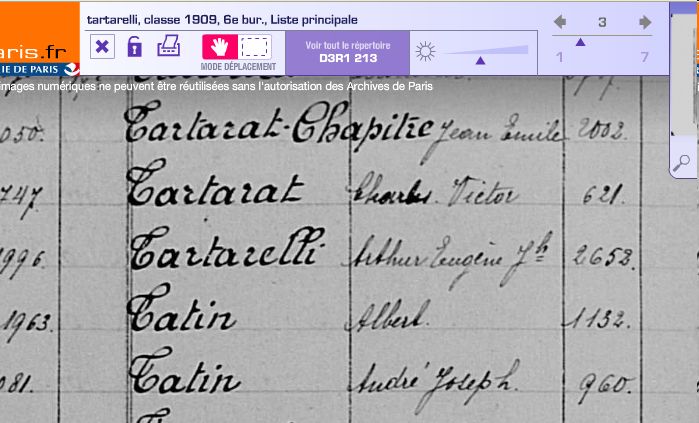 tartarelli, classe 1909, 6e bur., Liste principale
aris.fr
IE DE PARIS
MODE DÉPLACEMENT
Voir tout le répertoire
D3R1 213
3
1 7
images numériques ne peuvent être réutilisées sans l'autorisation des Archives de Paris
050. Tartarat-Chapitre Jean Emile 2002.
747 Tartarat Charles Victor 621.
1996. Tartarelli Arthur Eugène Jh 2652.
1963. Tatin Albert. 1132.
081. Tatin André Joseph. 960.